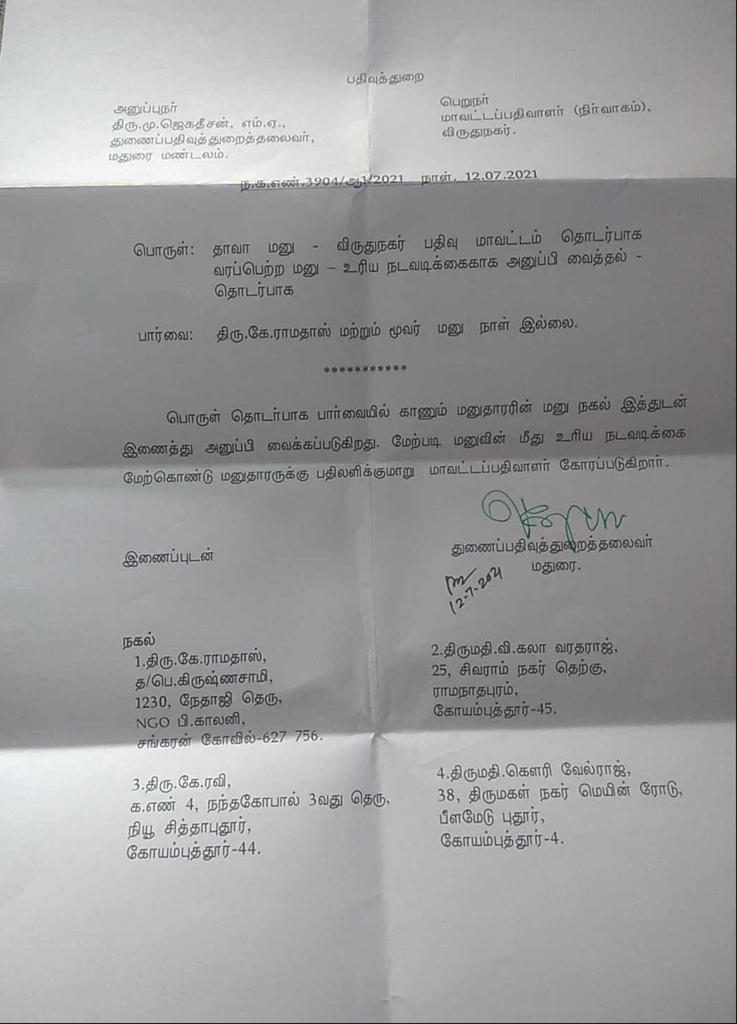 பதிவுத்துறை
அனுப்புநர்
திரு.மு.ஜெகதீசன், எம்.ஏ.,
துணைப்பதிவுத்துறைத்தலைவர்,
மதுரை மண்டலம்.
பெறுநர்
மாவட்டப்பதிவாளர் (நிர்வாகம்),
விருதுநகர்.
ந.க.எண்.3904/ஆ1/2021 நாள். 12.07.2021
பொருள்: தாவா மனு - விருதுநகர் பதிவு மாவட்டம் தொடர்பாக
வரப்பெற்ற மனு – உரிய நடவடிக்கைகாக அனுப்பி வைத்தல் -
தொடர்பாக
பார்வை: திரு.கே.ராமதாஸ் மற்றும் மூவர் மனு நாள் இல்லை.
***********
பொருள் தொடர்பாக பார்வையில் காணும் மனுதாரரின் மனு நகல் இத்துடன்
இணைத்து அனுப்பி வைக்கப்படுகிறது. மேற்படி மனுவின் மீது உரிய நடவடிக்கை
மேற்கொண்டு மனுதாரருக்கு பதிலளிக்குமாறு மாவட்டப்பதிவாளர் கோரப்படுகிறார்.
இணைப்புடன்
துணைப்பதிவுத்துறைத்தலைவர்
மதுரை.
12-7-2021
நகல்
1.திரு.கே.ராமதாஸ்,
த/பெ.கிருஷ்ணசாமி,
1230, நேதாஜி தெரு,
NGO பி.காலனி,
சங்கரன் கோவில்-627 756.
2.திருமதி.வி.கலா வரதராஜ்,
25, சிவராம் நகர் தெற்கு,
ராமநாதபுரம்,
கோயம்புத்தூர்-45.
3.திரு.கே.ரவி,
க.எண் 4, நந்தகோபால் 3வது தெரு,
நியூ சித்தாபுதூர்,
கோயம்புத்தூர்-44.
4.திருமதி.கௌரி வேல்ராஜ்,
38, திருமகள் நகர் மெயின் ரோடு,
பீளமேடு புதூர்,
கோயம்புத்தூர்-4.